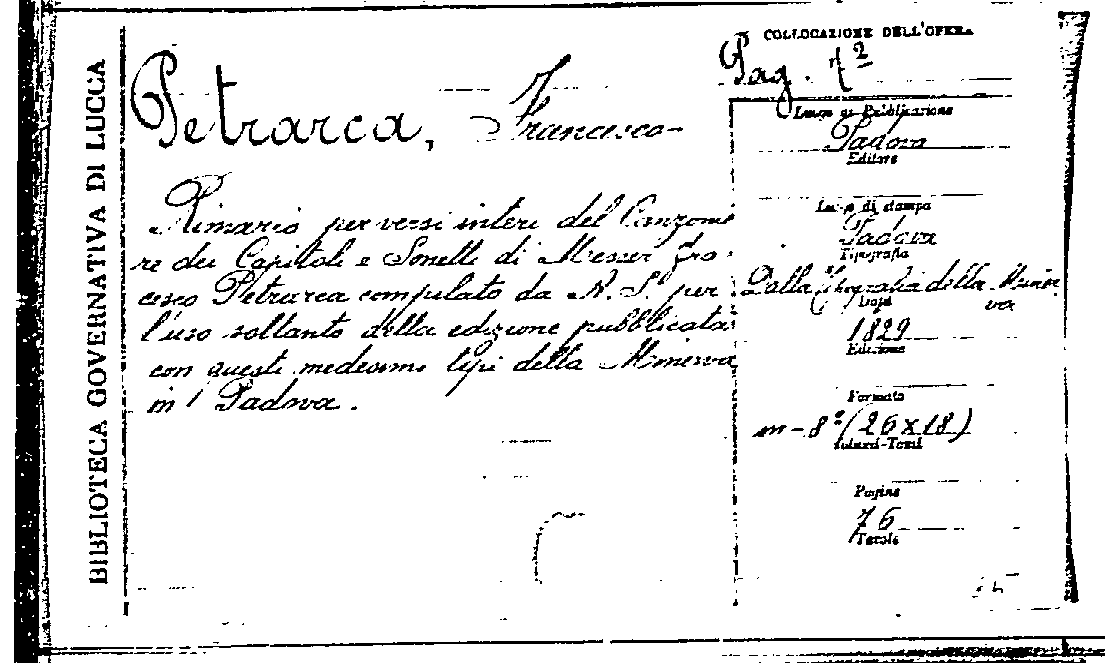 BIBLIOTECA GOVERNATIVA DI LUCCA
Petrarca, Francesco
Rimario per versi interi del Canzonie
re dei Capitoli e Sonetti di Messer Fra
cesco Petrarca compilato da N. S. per
l'uso soltanto della edizione pubblicata
con questi medesimi tipi della Minerva
in Padova.
COLLOCAZIONE DELL'OPERA
Pag.
Luogo di Pubblicazione
Padova
Editore
Luogo di stampa
Padova
Tipografia
Dalla Tipografia della Miner
va
Data
1829
Edizione
Formato
in-8º (26x18)
Volumi-Tomi
Pagine
76
Tavole